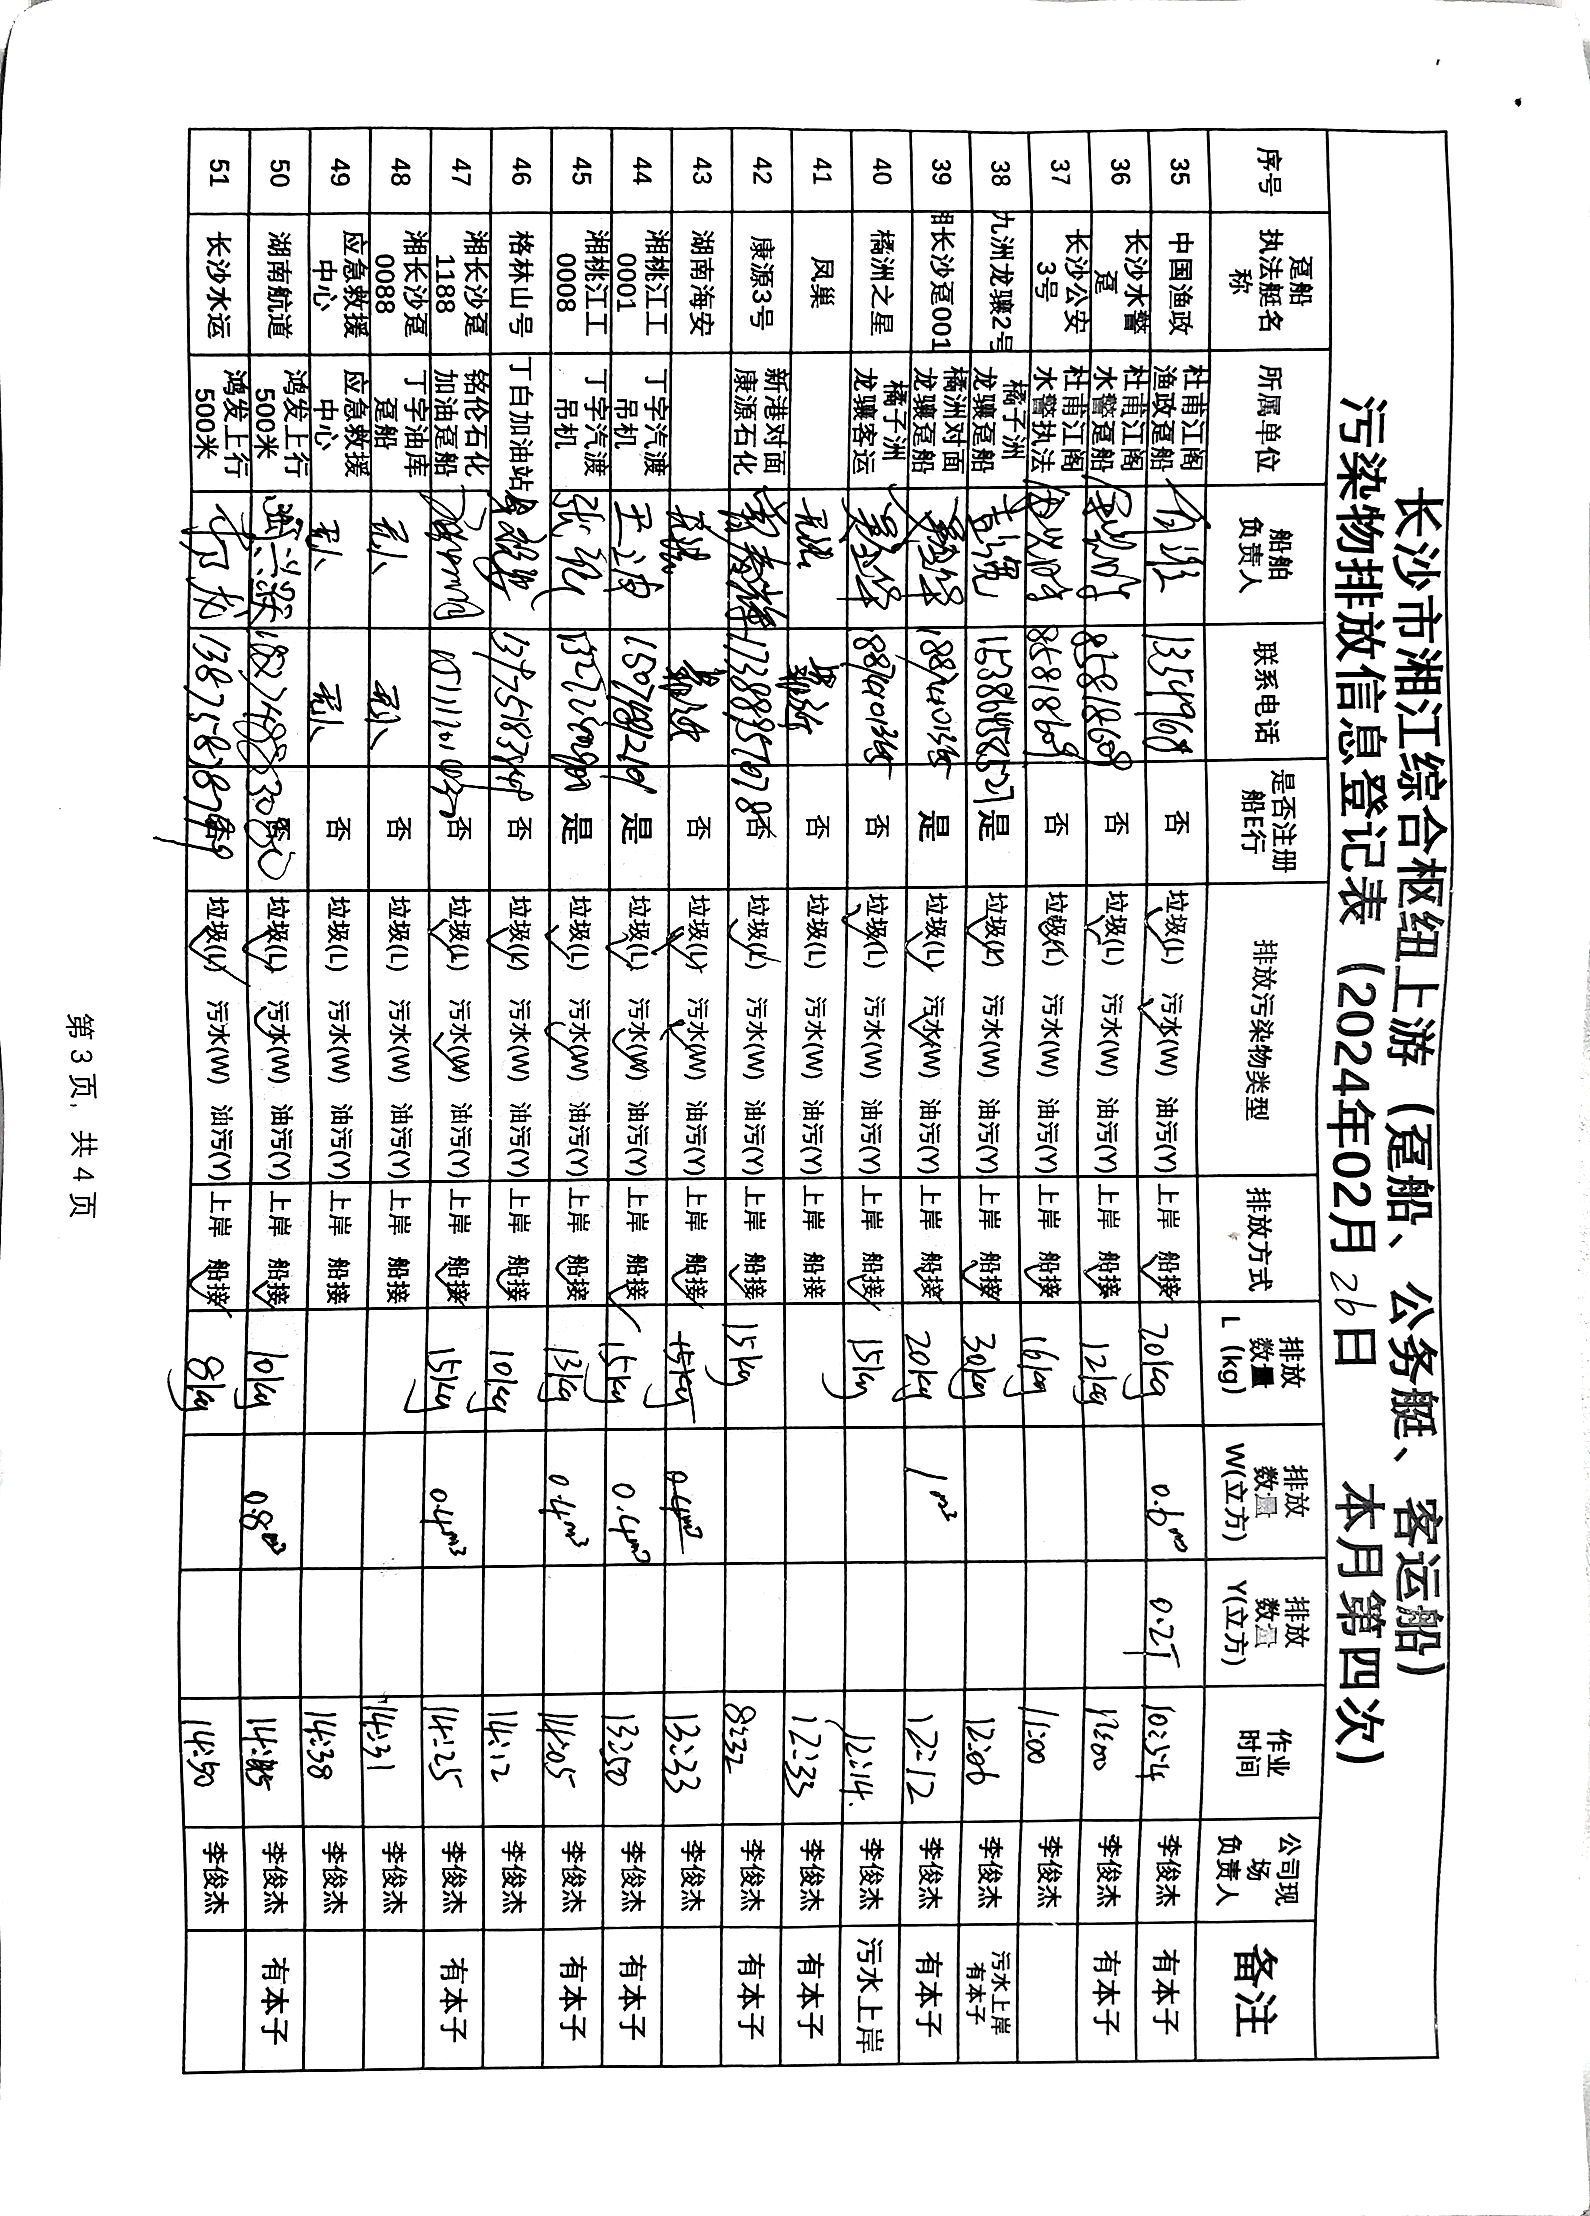 长沙市湘江综合枢纽上游（趸船、公务艇、客运船）
污染物排放信息登记表（2024年02月26日 本月第四次）
序号 趸船执法艇名称 所属单位 船舶负责人 联系电话 是否注册船E行 排放污染物类型 排放方式 排放数量L（kg） 排放数量W(立方) 排放数量Y(立方) 作业时间 公司现场负责人 备注
35 中国渔政 杜甫江阁渔政趸船 否 垃圾(L) 污水(W) 油污(Y) 上岸 船接 20kg 0.6m³ 0.2T 10:54 李俊杰 有本子
36 长沙水警趸 杜甫江阁水警趸船 85818609 否 垃圾(L) 污水(W) 油污(Y) 上岸 船接 12kg 李俊杰 有本子
37 长沙公安3号 杜甫江阁水警执法 85818609 否 垃圾(L) 污水(W) 油污(Y) 上岸 船接 16kg 11:00 李俊杰
38 九洲龙骧2号 橘子洲龙骧趸船 是 垃圾(L) 污水(W) 油污(Y) 上岸 船接 30kg 12:06 李俊杰 污水上岸有本子
39 湘长沙趸001 橘洲对面龙骧趸船 是 垃圾(L) 污水(W) 油污(Y) 上岸 船接 20kg 1m³ 12:12 李俊杰 有本子
40 橘洲之星 橘子洲龙骧客运 否 垃圾(L) 污水(W) 油污(Y) 上岸 船接 15kg 12:14. 李俊杰 污水上岸
41 凤巢 否 垃圾(L) 污水(W) 油污(Y) 上岸 船接 12:33 李俊杰 有本子
42 康源3号 新港对面康源石化 否 垃圾(L) 污水(W) 油污(Y) 上岸 船接 15kg 8:32 李俊杰 有本子
43 湖南海安 否 垃圾(L) 污水(W) 油污(Y) 上岸 船接 15kg 0.4m³ 13:33 李俊杰
44 湘桃江工0001 丁字汽渡吊机 是 垃圾(L) 污水(W) 油污(Y) 上岸 船接 15kg 0.4m³ 13:50 李俊杰 有本子
45 湘桃江工0008 丁字汽渡吊机 是 垃圾(L) 污水(W) 油污(Y) 上岸 船接 13kg 0.4m³ 14:05 李俊杰 有本子
46 格林山号 丁白加油站 否 垃圾(L) 污水(W) 油污(Y) 上岸 船接 10kg 14:12 李俊杰
47 湘长沙趸1188 铭伦石化加油趸船 否 垃圾(L) 污水(W) 油污(Y) 上岸 船接 15kg 0.4m³ 14:25 李俊杰 有本子
48 湘长沙趸0088 丁字油库趸船 无人 无人 否 垃圾(L) 污水(W) 油污(Y) 上岸 船接 14:31 李俊杰
49 应急救援中心 应急救援中心 无人 无人 否 垃圾(L) 污水(W) 油污(Y) 上岸 船接 14:38 李俊杰
50 湖南航道 鸿发上行500米 否 垃圾(L) 污水(W) 油污(Y) 上岸 船接 10kg 0.8m³ 李俊杰 有本子
51 长沙水运 鸿发上行500米 否 垃圾(L) 污水(W) 油污(Y) 上岸 船接 8kg 14:50 李俊杰
第 3 页, 共 4 页